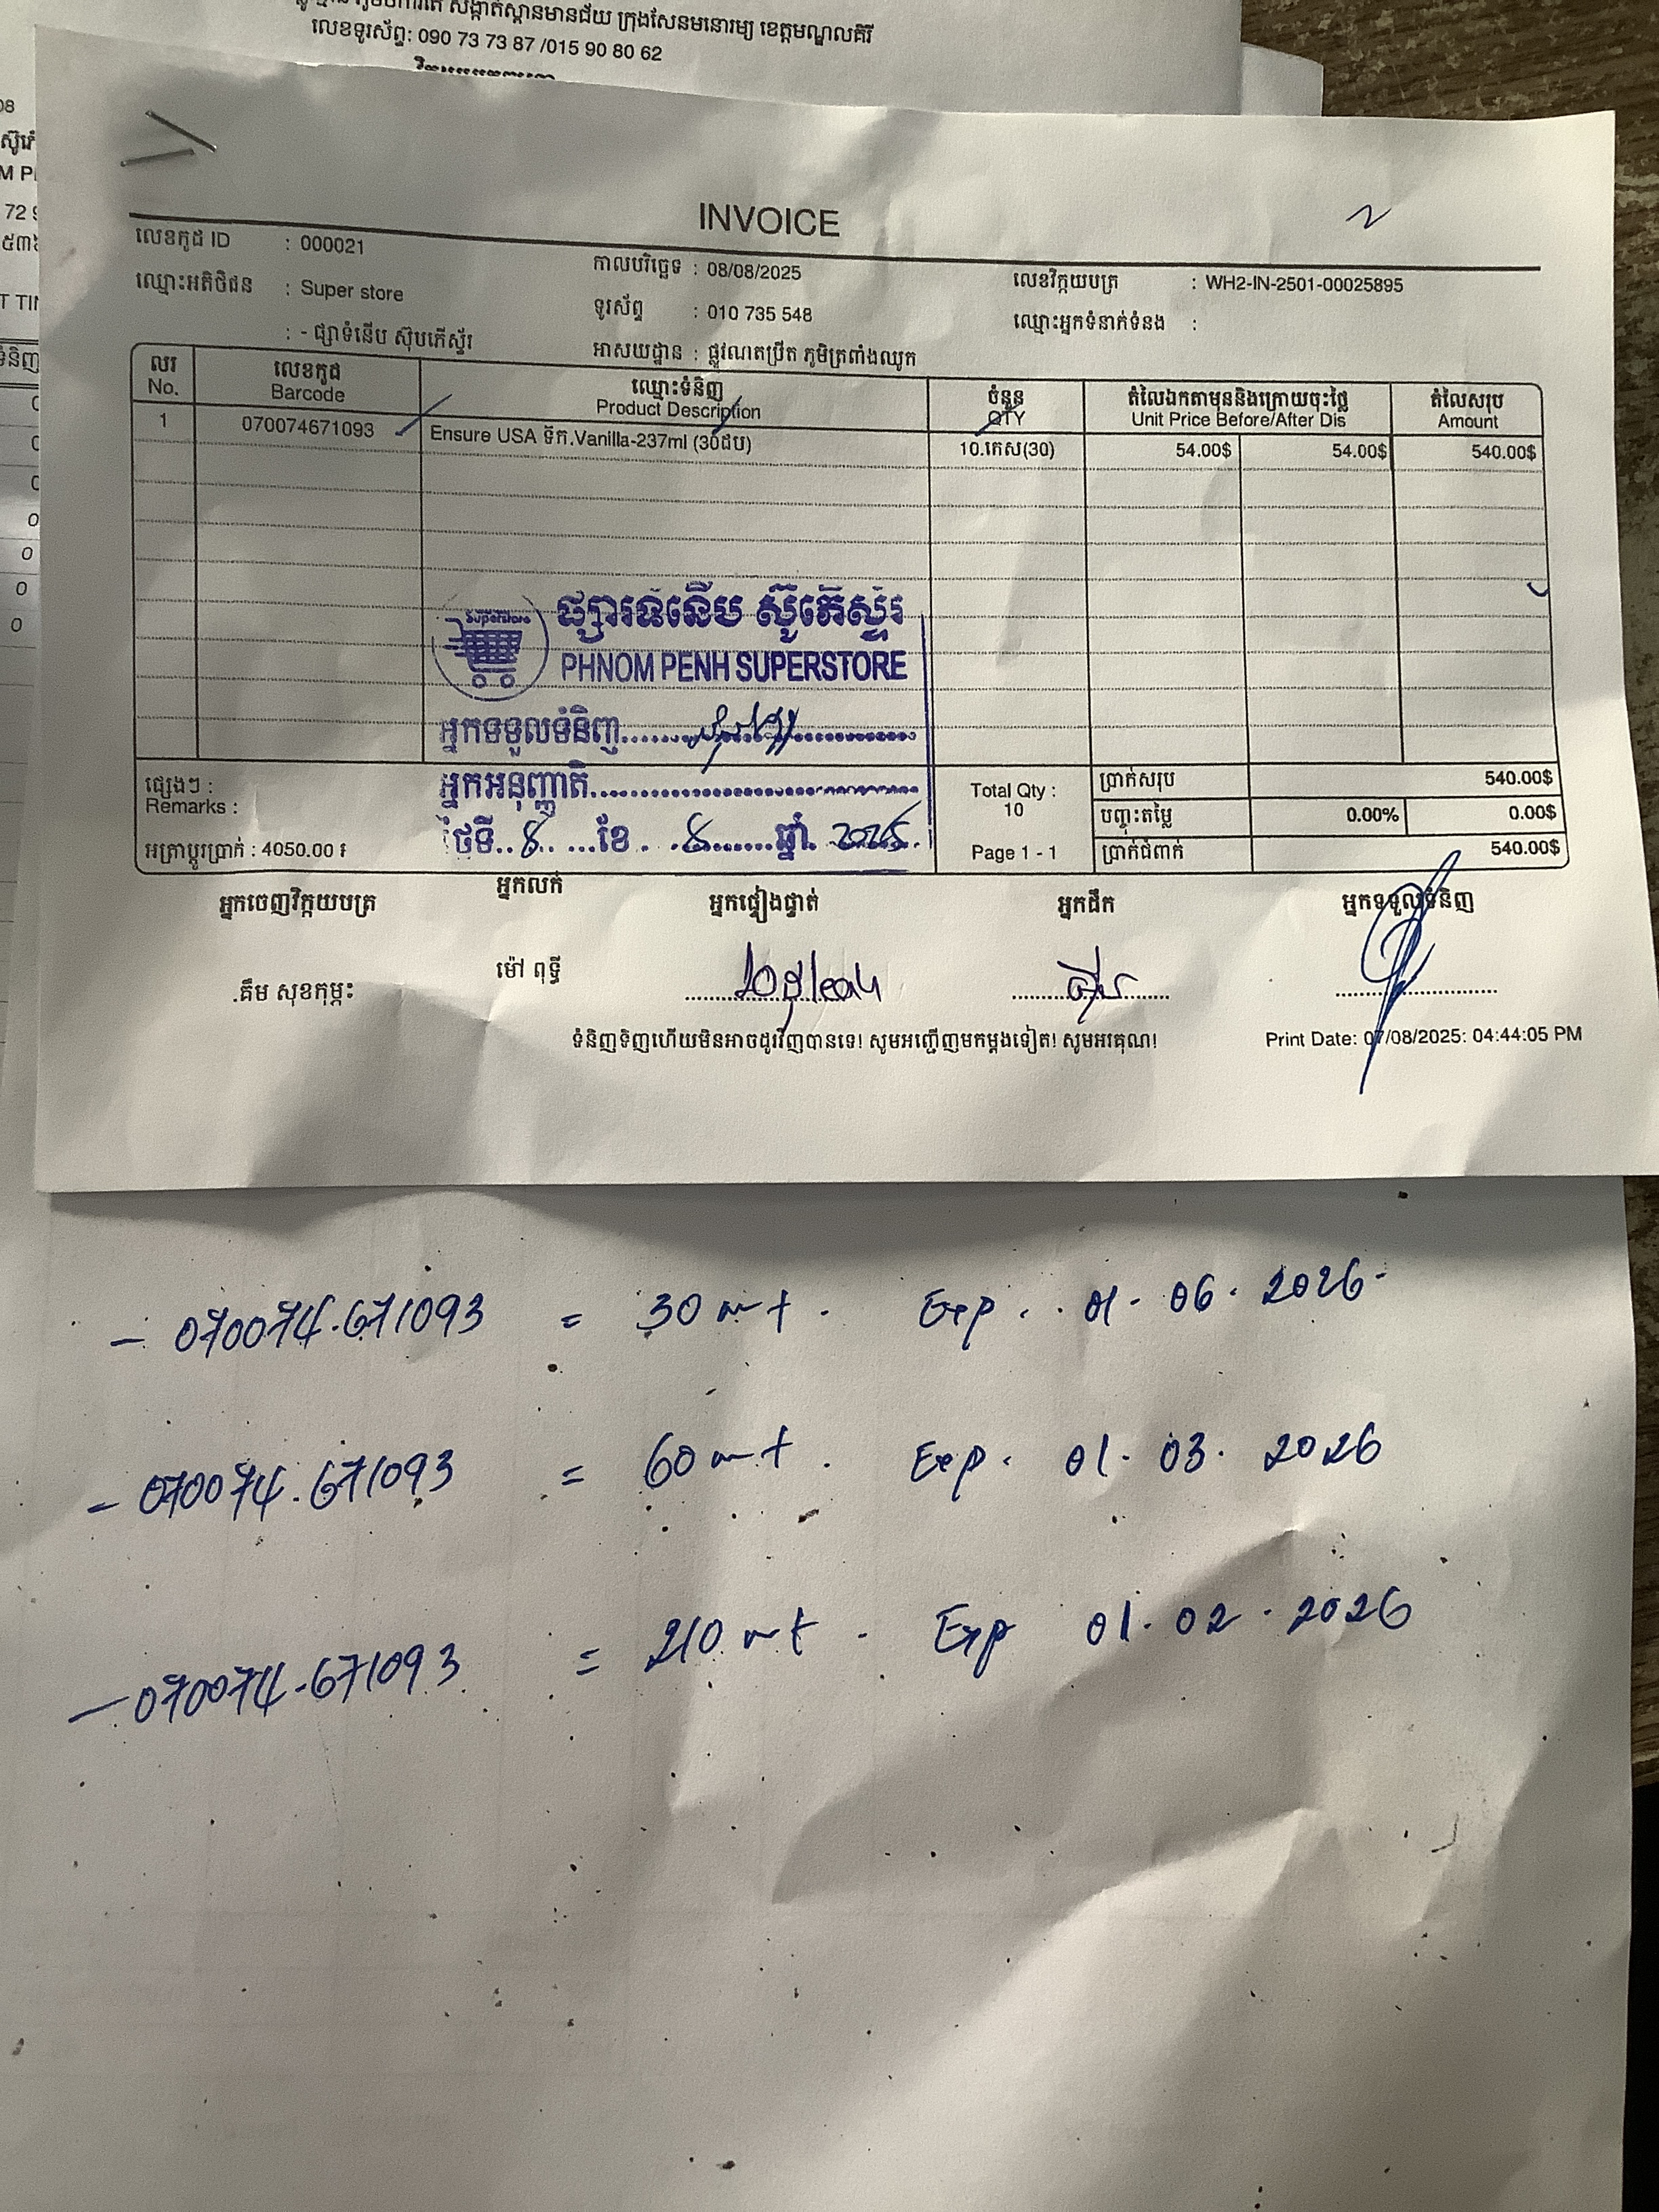 សង្កាត់ស្ពានមានជ័យ ក្រុងសែនមនោរម្យ ខេត្តមណ្ឌលគិរី
លេខទូរស័ព្ទ: 090 73 73 87 /015 90 80 62
INVOICE
លេខកូដ ID : 000021
កាលបរិច្ឆេទ : 08/08/2025
លេខវិក្កយបត្រ : WH2-IN-2501-00025895
ឈ្មោះអតិថិជន : Super store
ទូរស័ព្ទ : 010 735 548
ឈ្មោះអ្នកទំនាក់ទំនង :
: - ផ្សាទំនើប ស៊ុបភើស្ទ័រ
អាសយដ្ឋាន : ផ្លូវណតប្រ៊ីត ភូមិត្រពាំងឈូក
លរ លេខកូដ ឈ្មោះទំនិញ ចំនួន តំលៃឯកតាមុននិងក្រោយចុះថ្លៃ តំលៃសរុប
No. Barcode Product Description QTY Unit Price Before/After Dis Amount
1 070074671093 Ensure USA ទឹក.Vanilla-237ml (30ដប) 10.កេស(30) 54.00$ 54.00$ 540.00$
Superstore
ផ្សារទំនើប ស៊ូភើស្ទ័រ
PHNOM PENH SUPERSTORE
អ្នកទទួលទំនិញ
អ្នកអនុញ្ញាតិ
ថ្ងៃទី 8 ខែ 8 ឆ្នាំ 2025
ផ្សេងៗ :
Remarks :
អត្រាប្តូរប្រាក់ : 4050.00 ៛
Total Qty :
10
Page 1 - 1
ប្រាក់សរុប 540.00$
បញ្ចុះតម្លៃ 0.00% 0.00$
ប្រាក់ជំពាក់ 540.00$
អ្នកចេញវិក្កយបត្រ អ្នកលក់ អ្នកផ្ទៀងផ្ទាត់ អ្នកដឹក អ្នកទទួលទំនិញ
គឹម សុខកុម្ភះ ម៉ៅ ពុទ្ធី
ទំនិញទិញហើយមិនអាចដូរវិញបានទេ! សូមអញ្ជើញមកម្តងទៀត! សូមអរគុណ!
Print Date: 07/08/2025: 04:44:05 PM
- 070074.671093 = 30 Exp . 01. 06. 2026.
- 070074.671093 = 60 Exp . 01. 03. 2026
- 070074.671093 = 210 Exp 01. 02. 2026